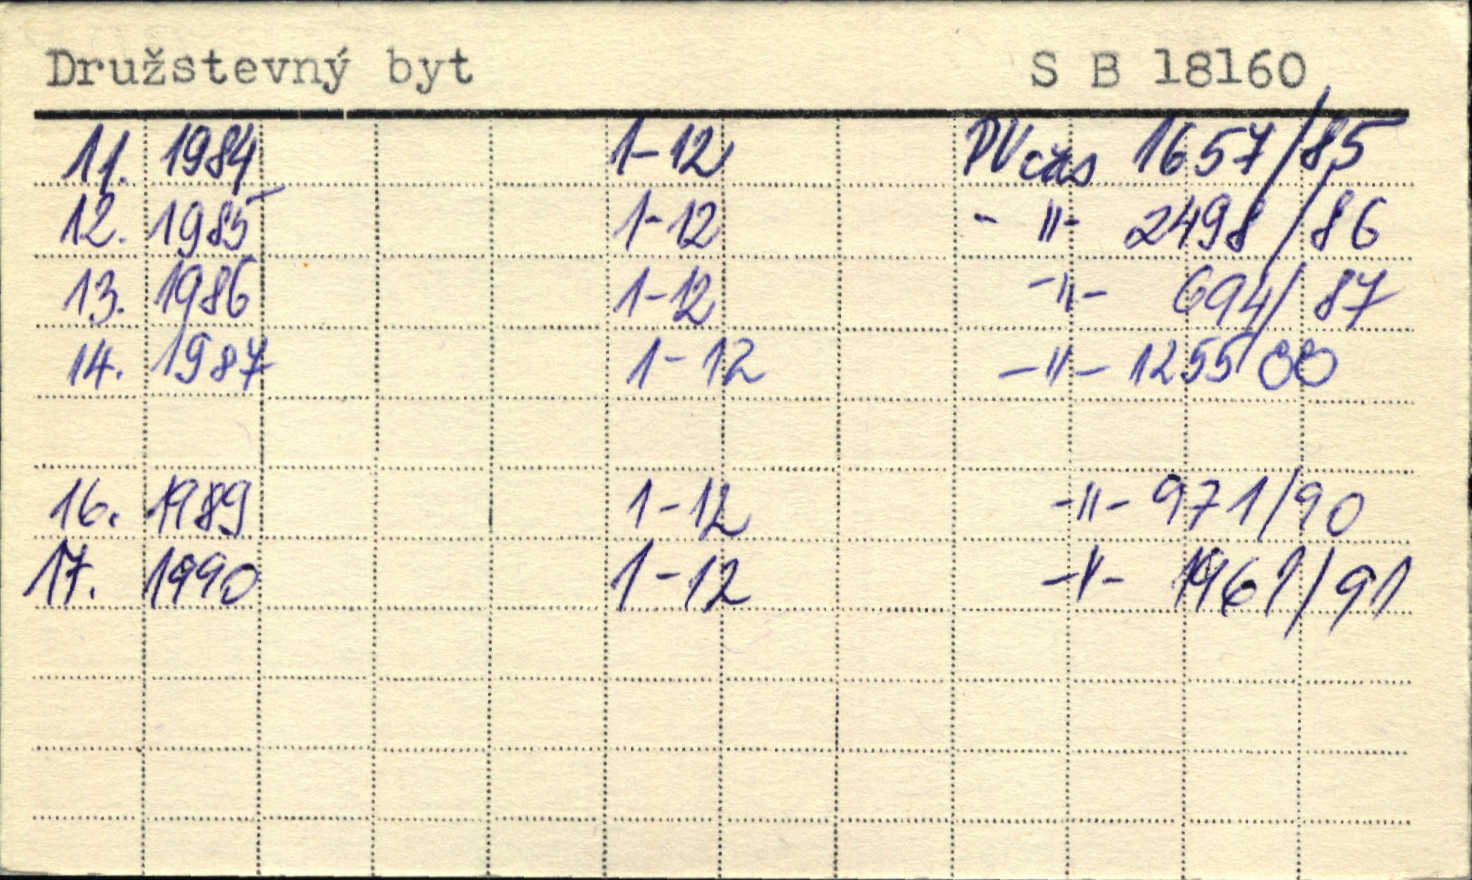 Družstevný byt S B 18160
11. 1984 1-12 PV čas 1657/85
12. 1985 1-12 -"- 2498/86
13. 1986 1-12 -"- 694/87
14. 1987 1-12 -"- 1255/88
16. 1989 1-12 -"- 971/90
17. 1990 1-12 -"- 1961/91